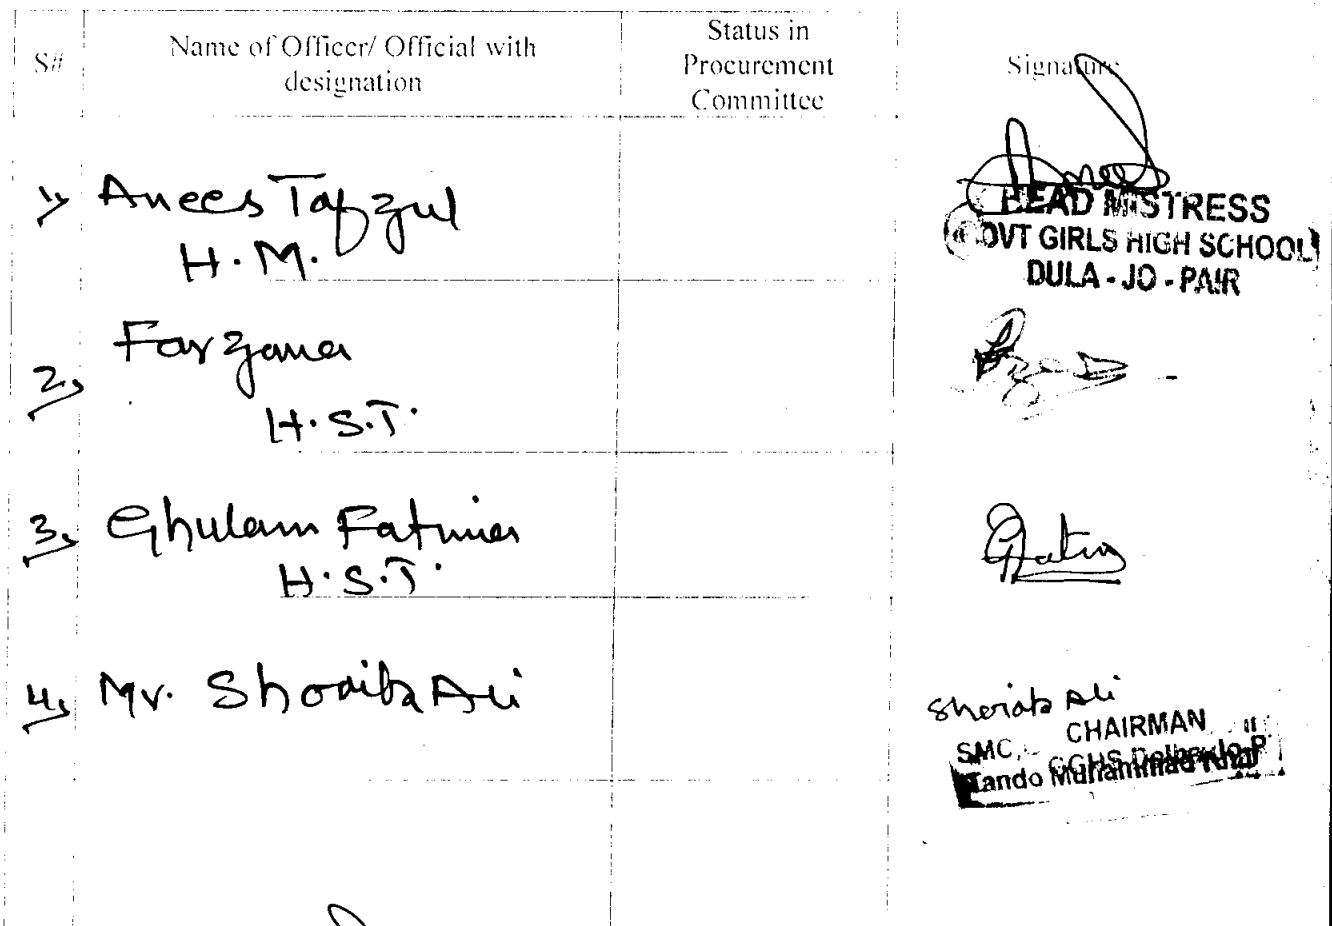 S#
Name of Officer/ Official with
designation
Status in
Procurement
Committee
Signature
1, Anees Tafzul
H.M.
HEAD MISTRESS
GOVT GIRLS HIGH SCHOOL
DULA - JO - PAIR
2, Farzana
H.S.T.
3, Ghulam Fatima
H.S.T.
4, Mr. Shoaib Ali
Shoiab Ali
CHAIRMAN
SMC, GGHS
Tando Muhammad Khan